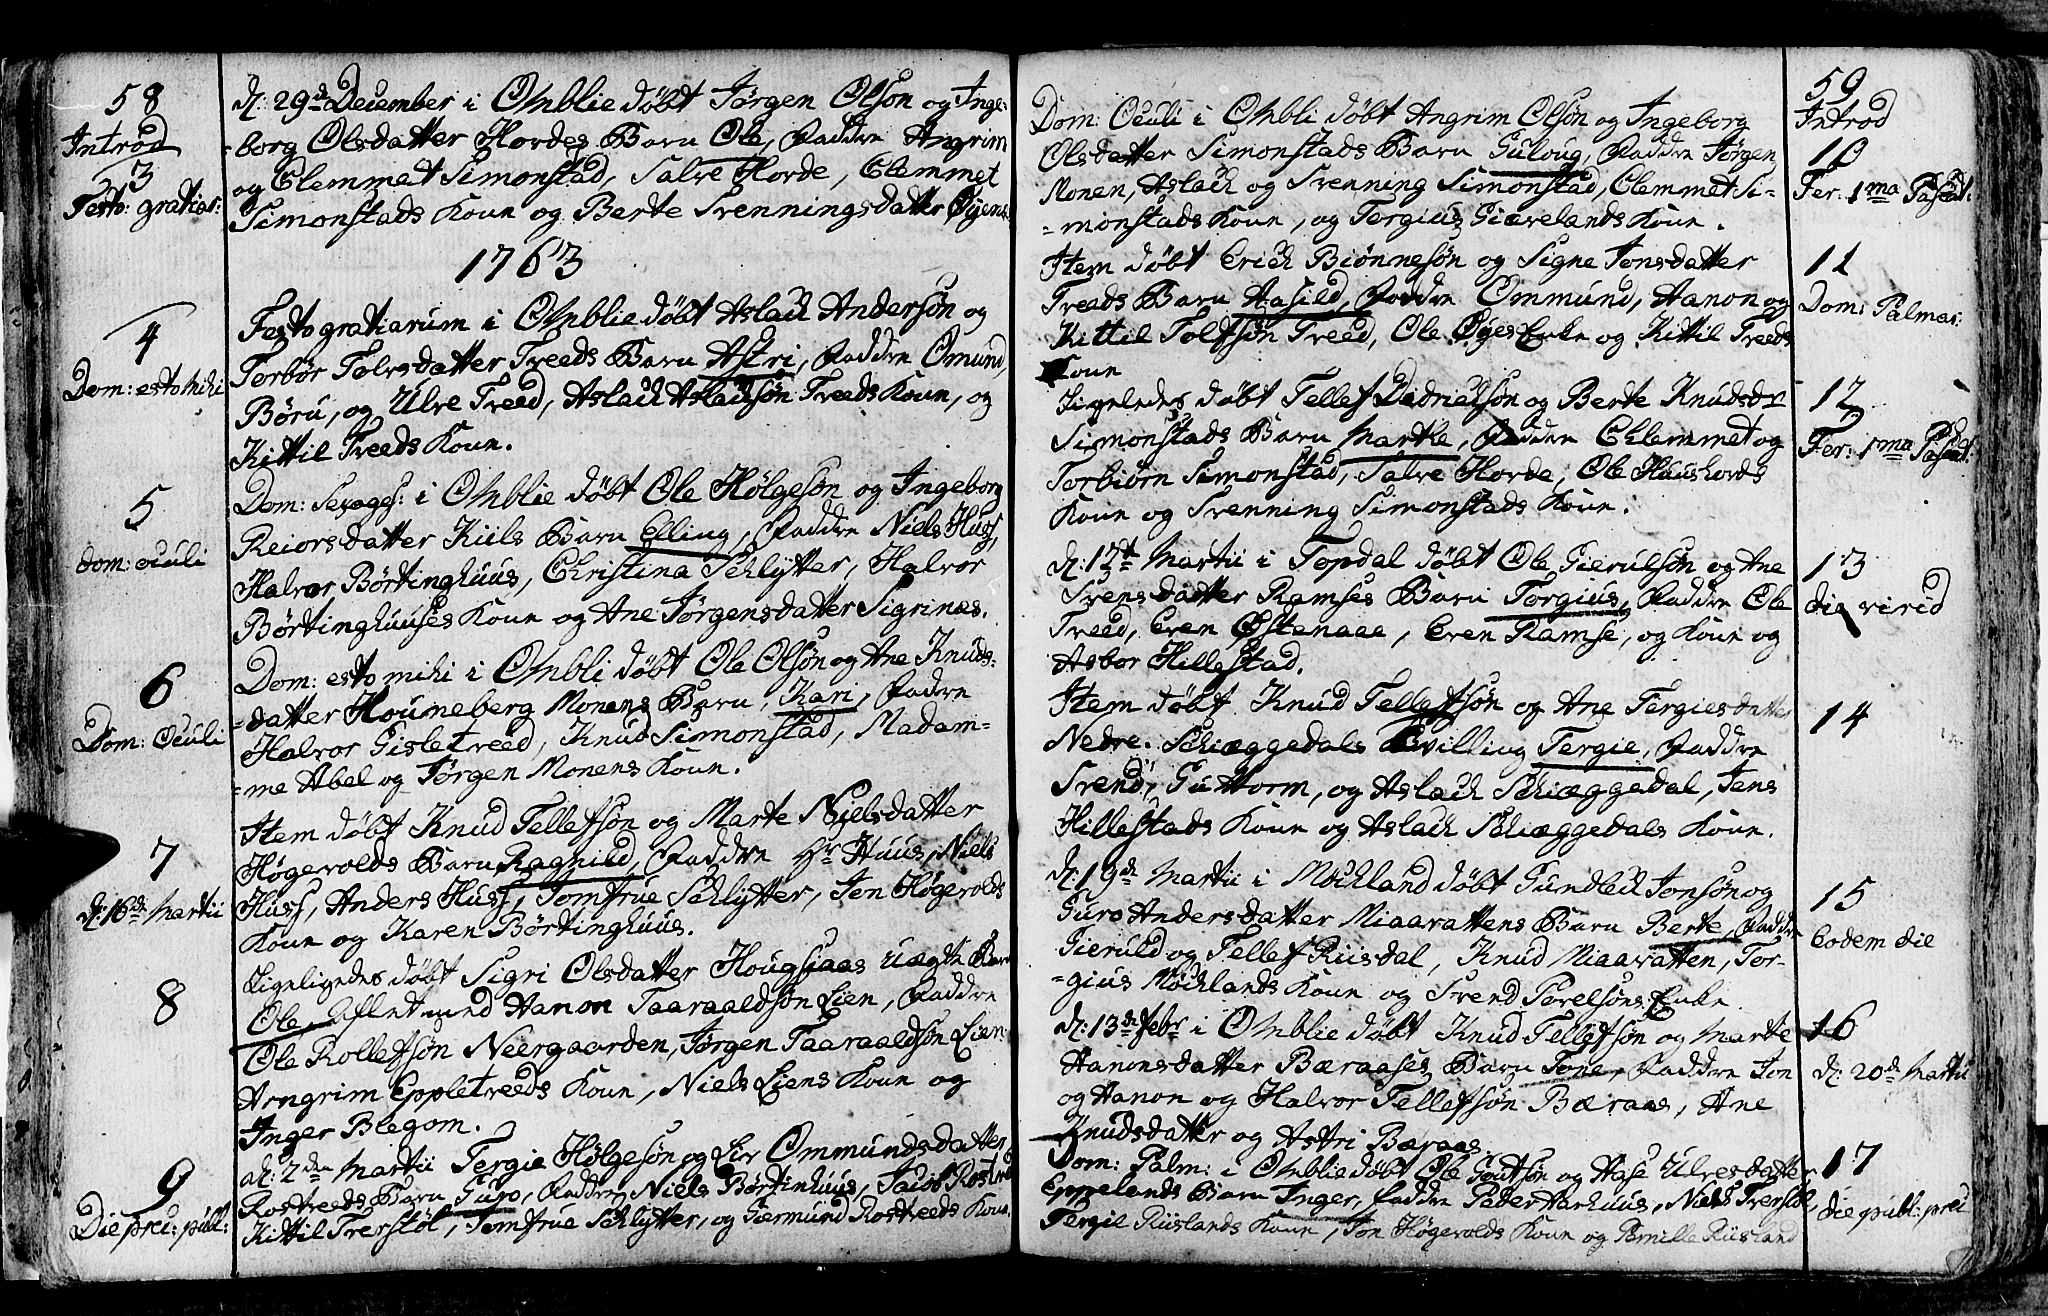 58
Introd
3
Festo: gratiar:
d: 29de December i Omblie døbt Jørgen Olsøn og Inge-
borg Olsdatter Hordes Barn Ole, Faddre Angrim
og Clemmet Simonstad, Salve Horde, Clemmet
Simonstads Kone og Berte Svenningsdatter Øyens
1763
4
Dom: esto mihi
Festo gratiarum i Omblie døbt Aslach Andersøn og
Torbør Tolvsdatter Treeds Barn Astri, Faddre Omund,
Børu, og Ulve Treed, Aslach Aslachsøn Treeds Kone, og
Kittil Treeds Kone.
5
Dom: oculi
Dom: Sexages: i Omblie døbt Ole Hølgesøn og Ingeborg
Reiorsdatter Kiils Barn Elling, Faddre Niels Huss,
Halvor Børtinghuus, Christina Schlytter, Halvor
Børtinghuuses Kone og Ane Jørgensdatter Sigrinæs.
6
Dom: Oculi
Dom: esto mihi i Ombli døbt Ole Olsøn og Ane Knuds-
datter Houmeberg Monens Barn, Kari, Faddre
Halvor Gisletreed, Knud Simonstad, Madam-
me Abel og Jørgen Monens Kone.
7
d: 16de Martii
Item døbt Knud Tellefsøn og Marte Nielsdatter
Høgevolds Barn Ragnild, Faddre Hr Huus, Niels
Huss, Anders Huss, Jomfrue Schlytter, Jon Høgevolds
Kone og Karen Børtinghuus.
8
Ligeligedes døbt Sigri Olsdatter Hougsjaas Uægte Barn
Ole, Aflet med Hanon Taaraaldsøn Lien, Faddre
Ole Rollefsøn Neergaarden, Jørgen Taaraaldsøn Lien
Arngrim Eppletreeds Kone, Niels Liens Kone og
Inger Blegom.
9
Die prec: publ:
d: 2den Martii Tergie Hølgesøn og Liv Ommundsdatter
Rostreeds Barn Guro, Faddre Niels Børtinhuus, Jacob Rostreed
Kittil Treestøl, Jomfrue Schlytter, og Giermund Rostreeds Kone.
59
Introd
10
Fer: 1ma Paschat:
Dom: Oculi i Ombli døbt Angrim Olsøn og Ingeborg
Olsdatter Simonstads Barn Guloug, Faddre Jørgen
Monen, Aslach og Svenning Simonstad, Clemmet Si-
monstads Kone, og Tergius Giævelands Kone.
11
Dom: Palmar:
Item døbt Erich Biønnesøn og Signe Jonsdatter
Treeds Barn Aasild, Faddre Ommund, Hanon og
Kittil Tolfsøn Treed, Ole Øyes Enke og Kittil Treeds
Kone
12
Fer: 1ma Paschat:
Ligeledes døbt Tellef Didrichsøn og Berte Knudsdr
Simonstads Barn Marthe, Faddre Chlemmet og
Torbiørn Simonstad, Salve Horde, Ole Huushords
Kone og Svenning Simonstads Kone.
13
die virid
d: 17t Martii i Topdal døbt Ole Gierulsøn og Ane
Svensdatter Ramses Barn Torgius, Faddre Ole
Treed, Even Østenaae, Even Ramse, og Kone og
Asbor Hillestad.
14
Item døbt Knud Tellefsøn og Ane Tergiesdatter
Nedre Schæggedals Tvilling Tergie, Faddre
Svend, Guttorm, og Aslach Schiæggedal, Jens
Hillestads Kone og Aslach Schiæggedals Kone.
15
Eodem die
d: 19de Martii i Mochland døbt Gundlech Jonsøn og
Guro Andersdatter Miaavattens Barn Berte, Faddre
Gieruld og Tellef Riisdal, Knud Miaavatten, Tor-
gius Mochlands Kone og Svend Povelsøns Enke
16
d: 20de Martii
d: 13de febr i Omblie døbt Knud Tellefsøn og Marte
Hanonsdatter Bæraases Barn Tone, Faddre Jon
og Hanon og Halvor Tellefsøn Bæraas, Ane
Knudsdatter og Astri Bæraas.
17
die publ: prec
Dom: Palm: i Omblie døbt Ole Goutsøn og Aase Ulvesdatter
Eppelands Barn Inger, Faddre Peder Aarhuus, Niels Trevstøl,
Tergie Riislands Kone, Jon Høgevolds Kone og Pernille Riisland